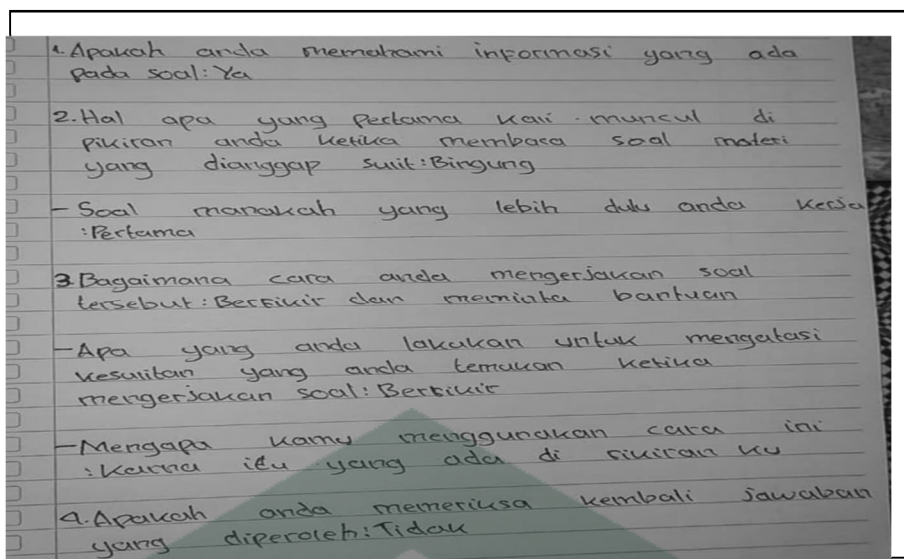 1. Apakah anda memahami informasi yang ada
pada soal: Ya
2. Hal apa yang pertama kali muncul di
pikiran anda ketika membaca soal materi
yang dianggap sulit: Bingung
- Soal manakah yang lebih dulu anda kerja
: Pertama
3. Bagaimana cara anda mengerjakan soal
tersebut: Berfikir dan meminta bantuan
- Apa yang anda lakukan untuk mengatasi
kesulitan yang anda temukan ketika
mengerjakan soal: Berfikir
- Mengapa kamu menggunakan cara ini
: Karna itu yang ada di fikiran ku
4. Apakah anda memeriksa kembali jawaban
yang diperoleh: Tidak